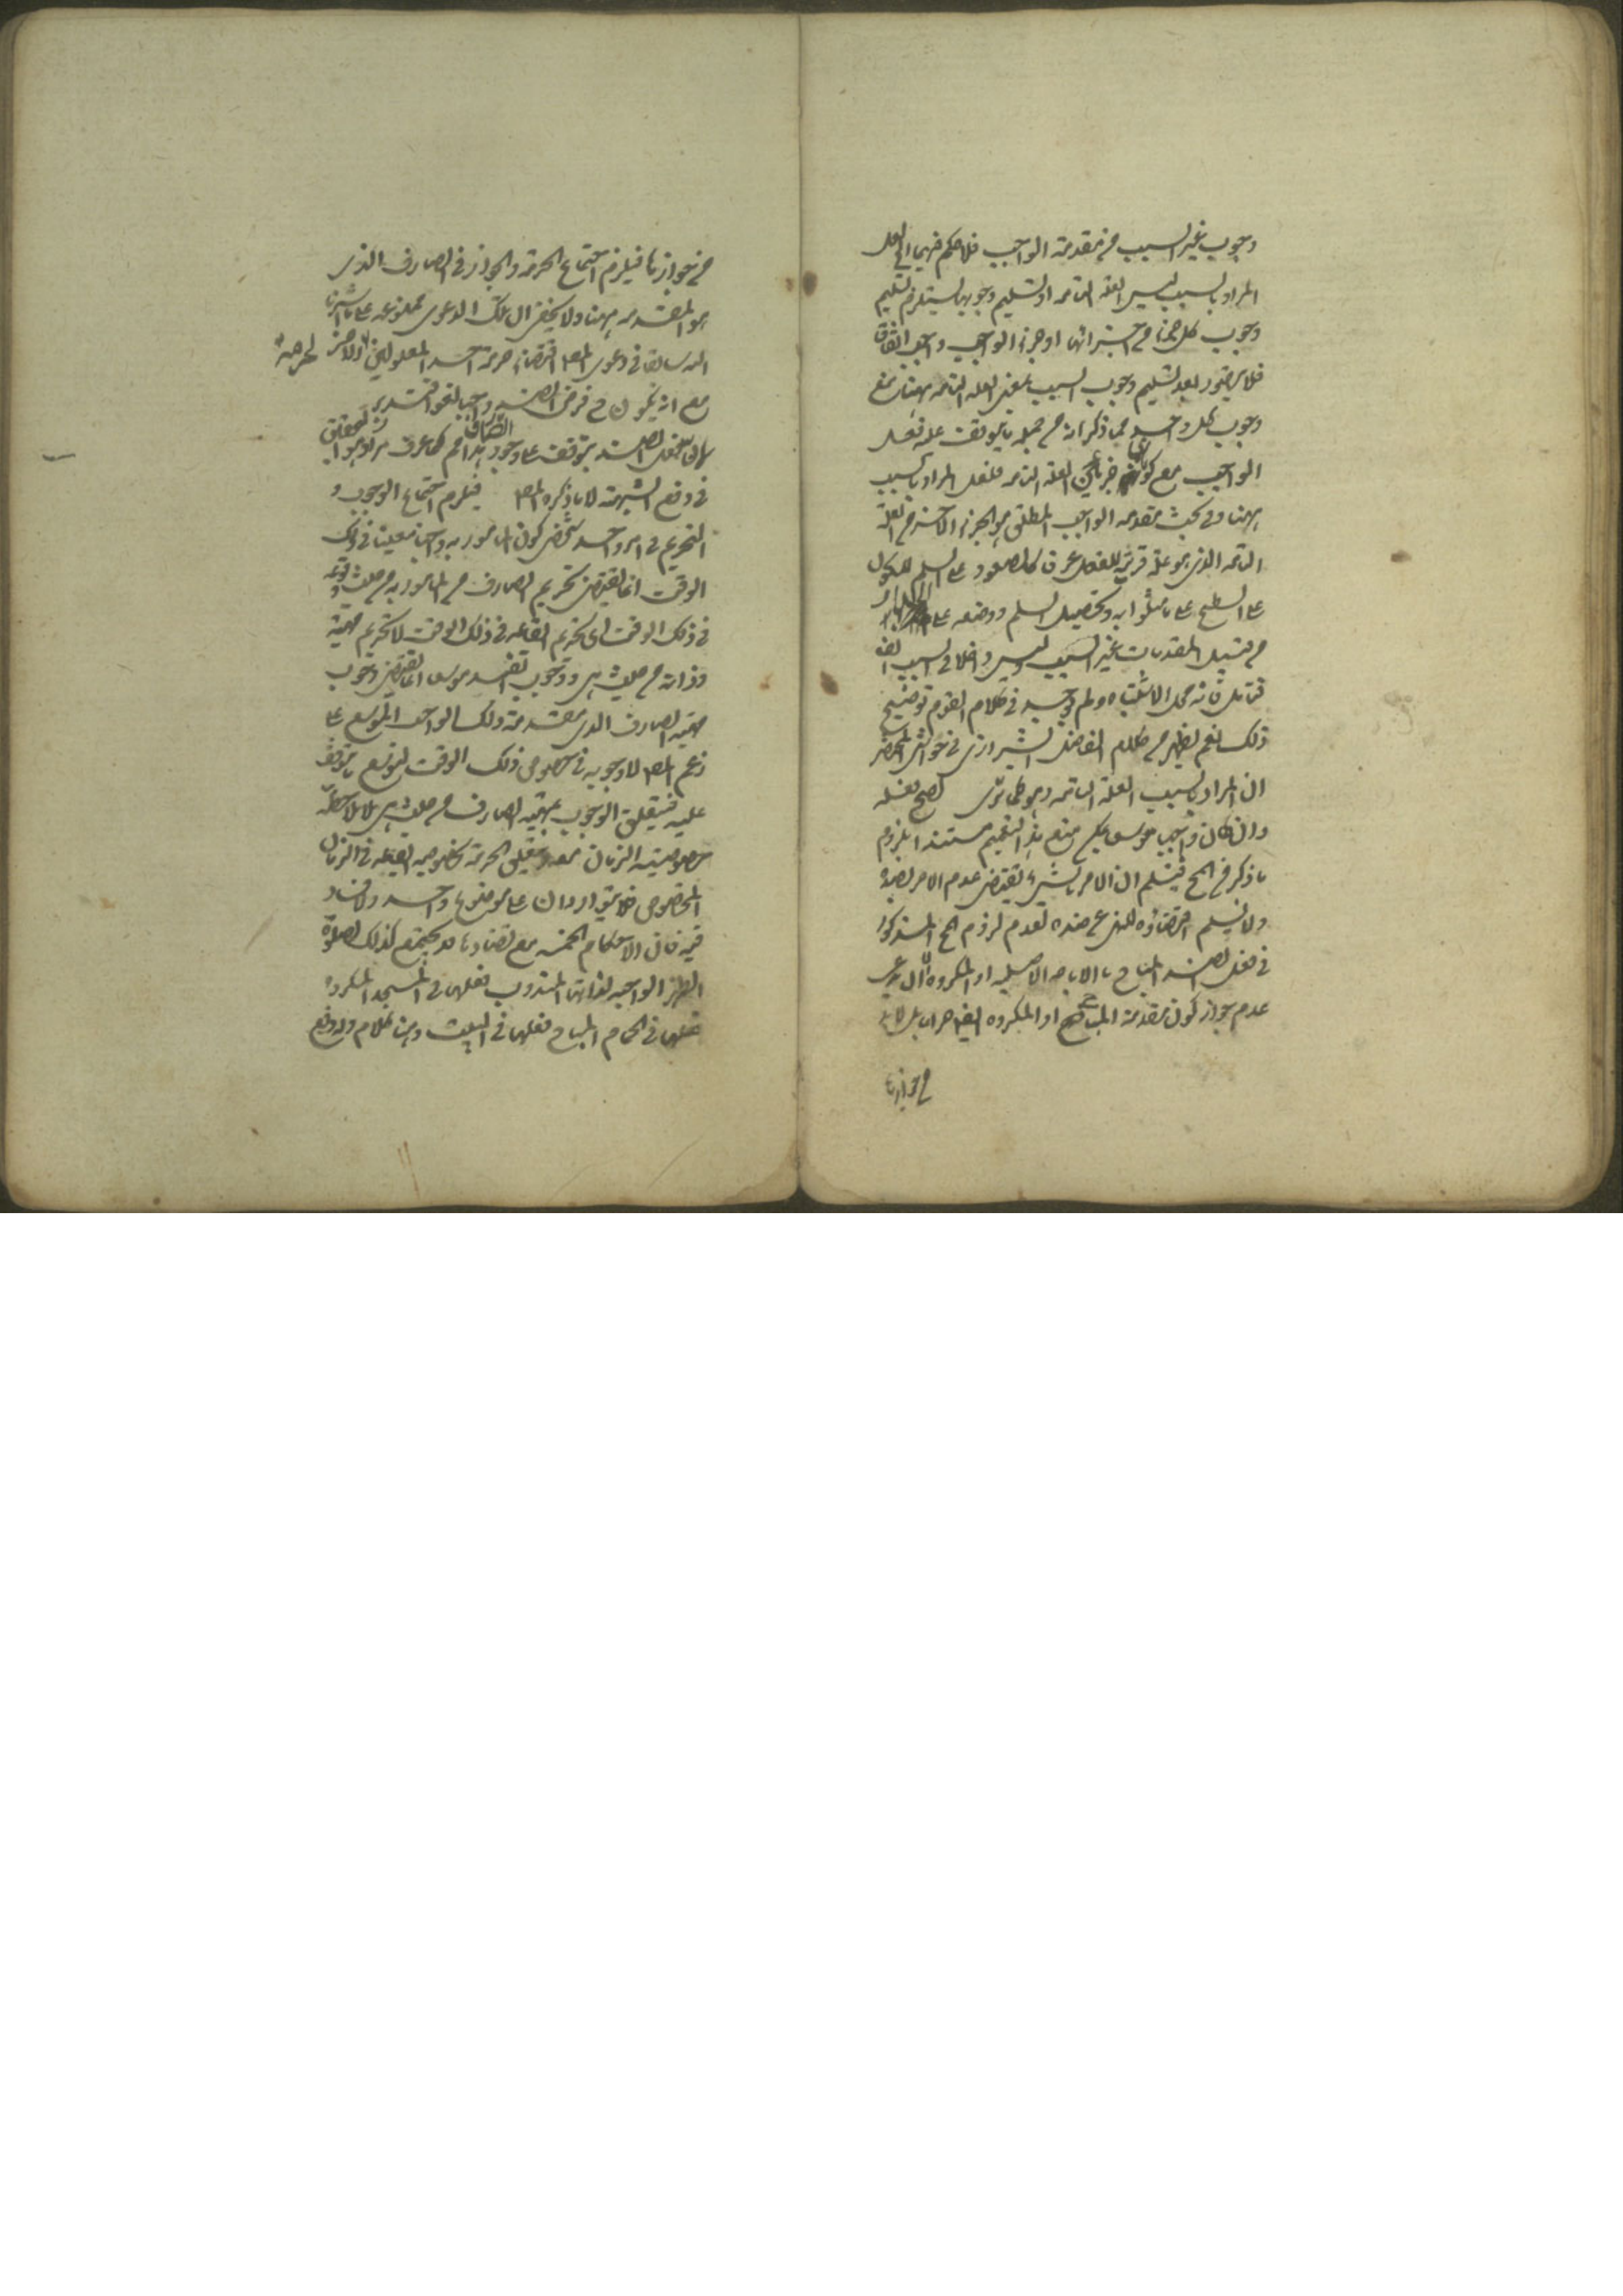 وجوب غير السبب من مقدمة الواجب فلا حكم فيهما الى لعل
المراد بالسبب ليس العلة التامة اذ تسليم وجوبها يستلزم تسليم
وجوب كل جزء من اجزائها اذ جزء الواجب واجب اتفاقا
فلا يتصور بعد تسليم وجوب السبب بمعنى العلة التامة ههنا منع
وجوب كل واحد مما ذكر انه من جملة ما يتوقف عليه فعل
الواجب مع كونه جزءا من العلة التامة فلعل المراد بالسبب
ههنا وفي بحث مقدمة الواجب المطلق هو الجزء الاخير من العلة
التامة الذي هو علة قريبة للفعل عرفا كالصعود على السلم للكون
على السطح على ما مثلوا به وتحصيل السلم ووضعه على الجدار
من قبيل المقدمات غير السبب وليس داخلا في السبب ايضا
فتامل فانه محل الاشتباه ولم يوجد في كلام القوم توضيح
ذلك نعم يظهر من كلام الفاضل الشيرازي في حواشي المختصر
ان المراد بالسبب العلة التامة وهو كما ترى لصح فعله
وان كان واجبا موسعا يمكن منع هذا التعميم مستندا بلزوم
ما ذكر في الحج فيسلم ان الامر بالشيء يقتضي عدم الامر بضده
ولا يسلم اقتضاؤه للنهي عن ضده لعدم لزوم الحج المذكور
في فعل الضد المباح بالاباحة الاصلية او المكروه الا ان يدعى
عدم جواز كون مقدمة المباح او المكروه ايضا حراما بل لا بد
من جوازها
من جوازها فيلزم اجتماع الحرمة والجواز في الصارف الذي
هو المقدمة ههنا ولا يخفى ان تلك الدعوى ممنوعة على ما اشرنا
اليه سابقا في دعوى المص اقتضاء حرمة احد المعلولين الآخر لحرمة
مع انه يكون في فرض الضد واجبا لغوا فتدبر
لان فعل الضد يتوقف على وجود الصارف هذا كما عرفت مرارا هو التحقيق
في دفع الشبهة لا ما ذكره المص فيلزم اجتماع الوجوب و
التحريم في امر واحد شخصي كون المامور به واجبا معينا في ذلك
الوقت انما يقتضي تحريم الصارف من المامور به من حيث وقوعه
في ذلك الوقت اى تحريم ايقاعه في ذلك الوقت لا تحريم مهيته
وذاته من حيث هي ووجوب الضد موسعا انما يقتضي وجوب
مهية الصارف الذي مقدمة ذلك الواجب الموسع على
زعم المص لا وجوبه في خصوص ذلك الوقت لتوسع ما يتوقف
عليه فيتعلق الوجوب بمهية الصارف من حيث هي بلا ملاحظة
خصوصية الزمان معه ويتعلق الحرمة بخصوصية ايقاعه في الزمان
المخصوص فلا يتواردان على موضوع واحد ولا فساد
فيه فان الاحكام الخمسة مع تضادها قد يجتمع كذلك كصلوة
الظهر الواجبة لذاتها المندوب فعلها في المسجد المكروه
فعلها في الحمام المباح فعلها في البيت وهنا كلام ولدفع